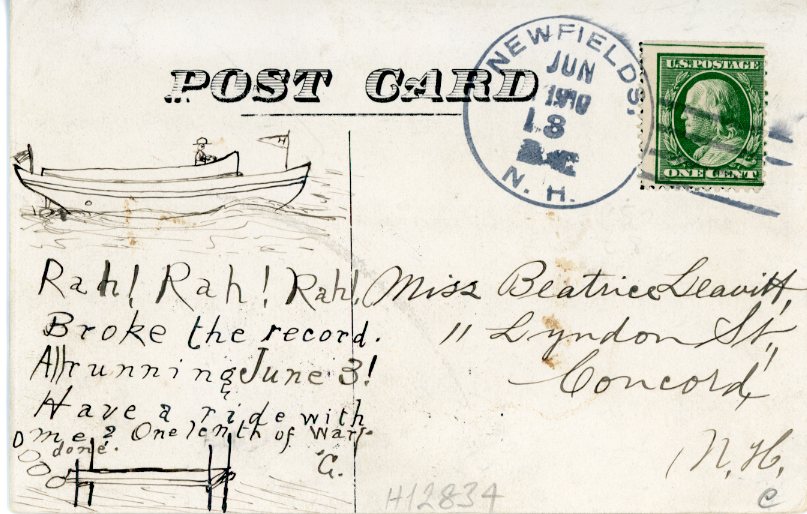 POST CARD
NEWFIELDS,
JUN
18
1910
N. H.
U.S. POSTAGE
ONE CENT
H
Rah! Rah! Rah!
Broke the record.
All running June 3!
Have a ride with
me? One lenth of warf
done.
G.
Miss Beatrice Leavitt,
11 Lyndon St.,
Concord,
N. H.
H12834
c